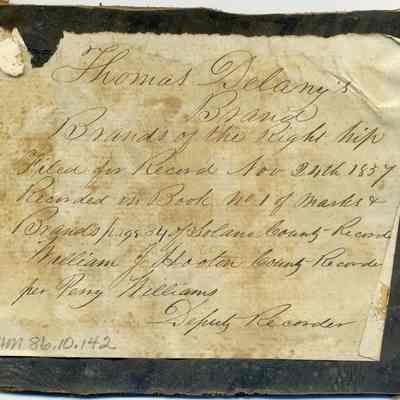 Thomas Delany's
Brand
Brands of the Right hip
Filed for Record Nov 24th 1857
Recorded in Book No. 1 of Marks &
Brands page 34 of Solano County Record
William J Hooten County Recorder
per Perry Williams
Deputy Recorder
86.10.142